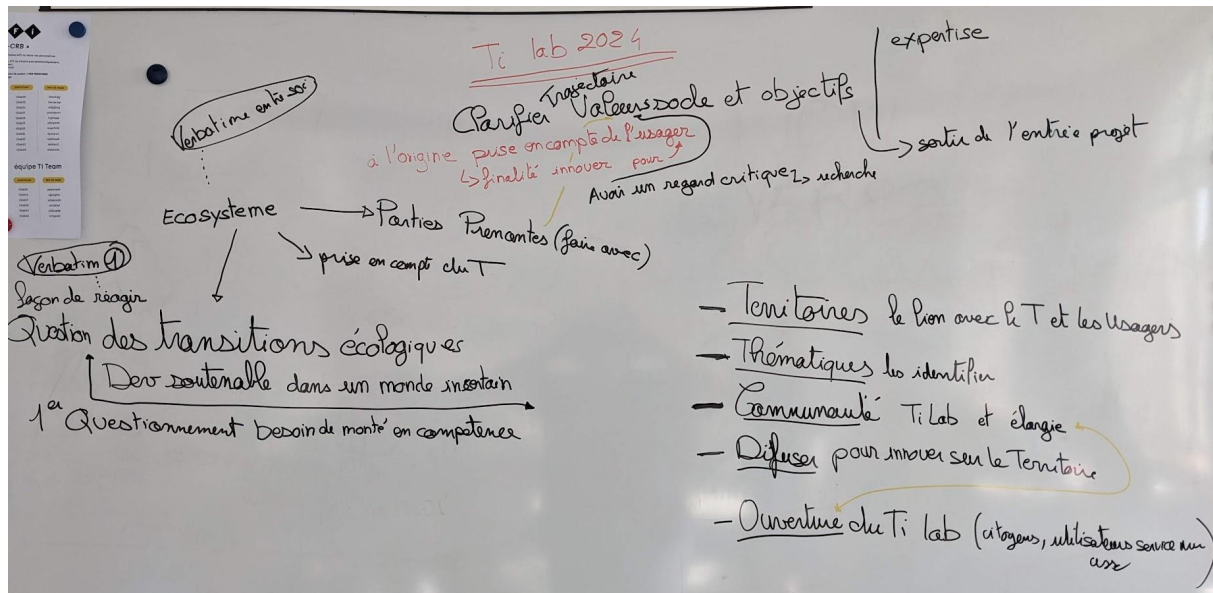 -CRB
équipe TI Team
Ti lab 2024
Trajectoire
Clarifier Valeurs socle et objectifs
à l'origine prise en compte de l'usager
↳ finalité innover pour
Avoir un regard critique ↳ recherche
expertise
→ sortir de l'entrée projet
Verbatime entre soi
Ecosysteme → Parties Prenantes (faire avec)
prise en compt du T
Verbatim 1
façon de réagir
Question des transitions écologiques
Dev soutenable dans un monde incertain
1er Questionnement besoin de monté en competence
- Territoires le lien avec le T et les Usagers
- Thématiques les identifier
- Communauté Ti Lab et élargie
- Difuser pour innover sur le Territoire
- Ouverture du Ti lab (citoyens, utilisateurs service num
)